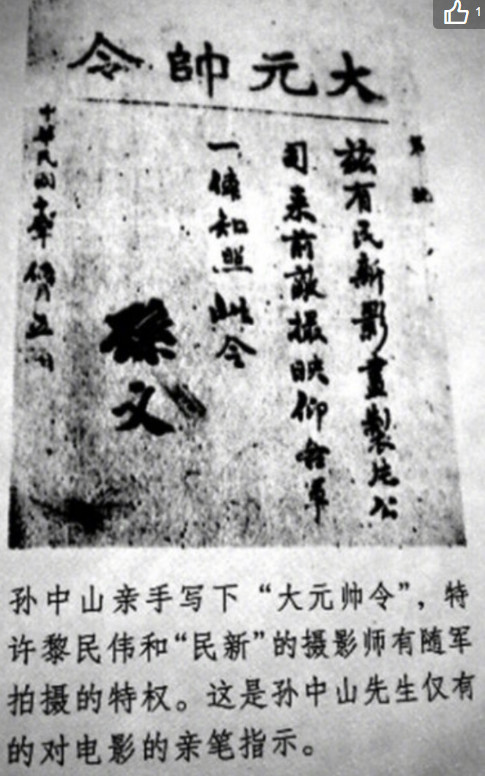 1
大元帥令
第 號
茲有民新影畫製片公
司來前敵攝映仰各軍
一體知照此令
孫文
中華民國十
月五日
孙中山亲手写下“大元帅令”，特
许黎民伟和“民新”的摄影师有随军
拍摄的特权。这是孙中山先生仅有
的对电影的亲笔指示。